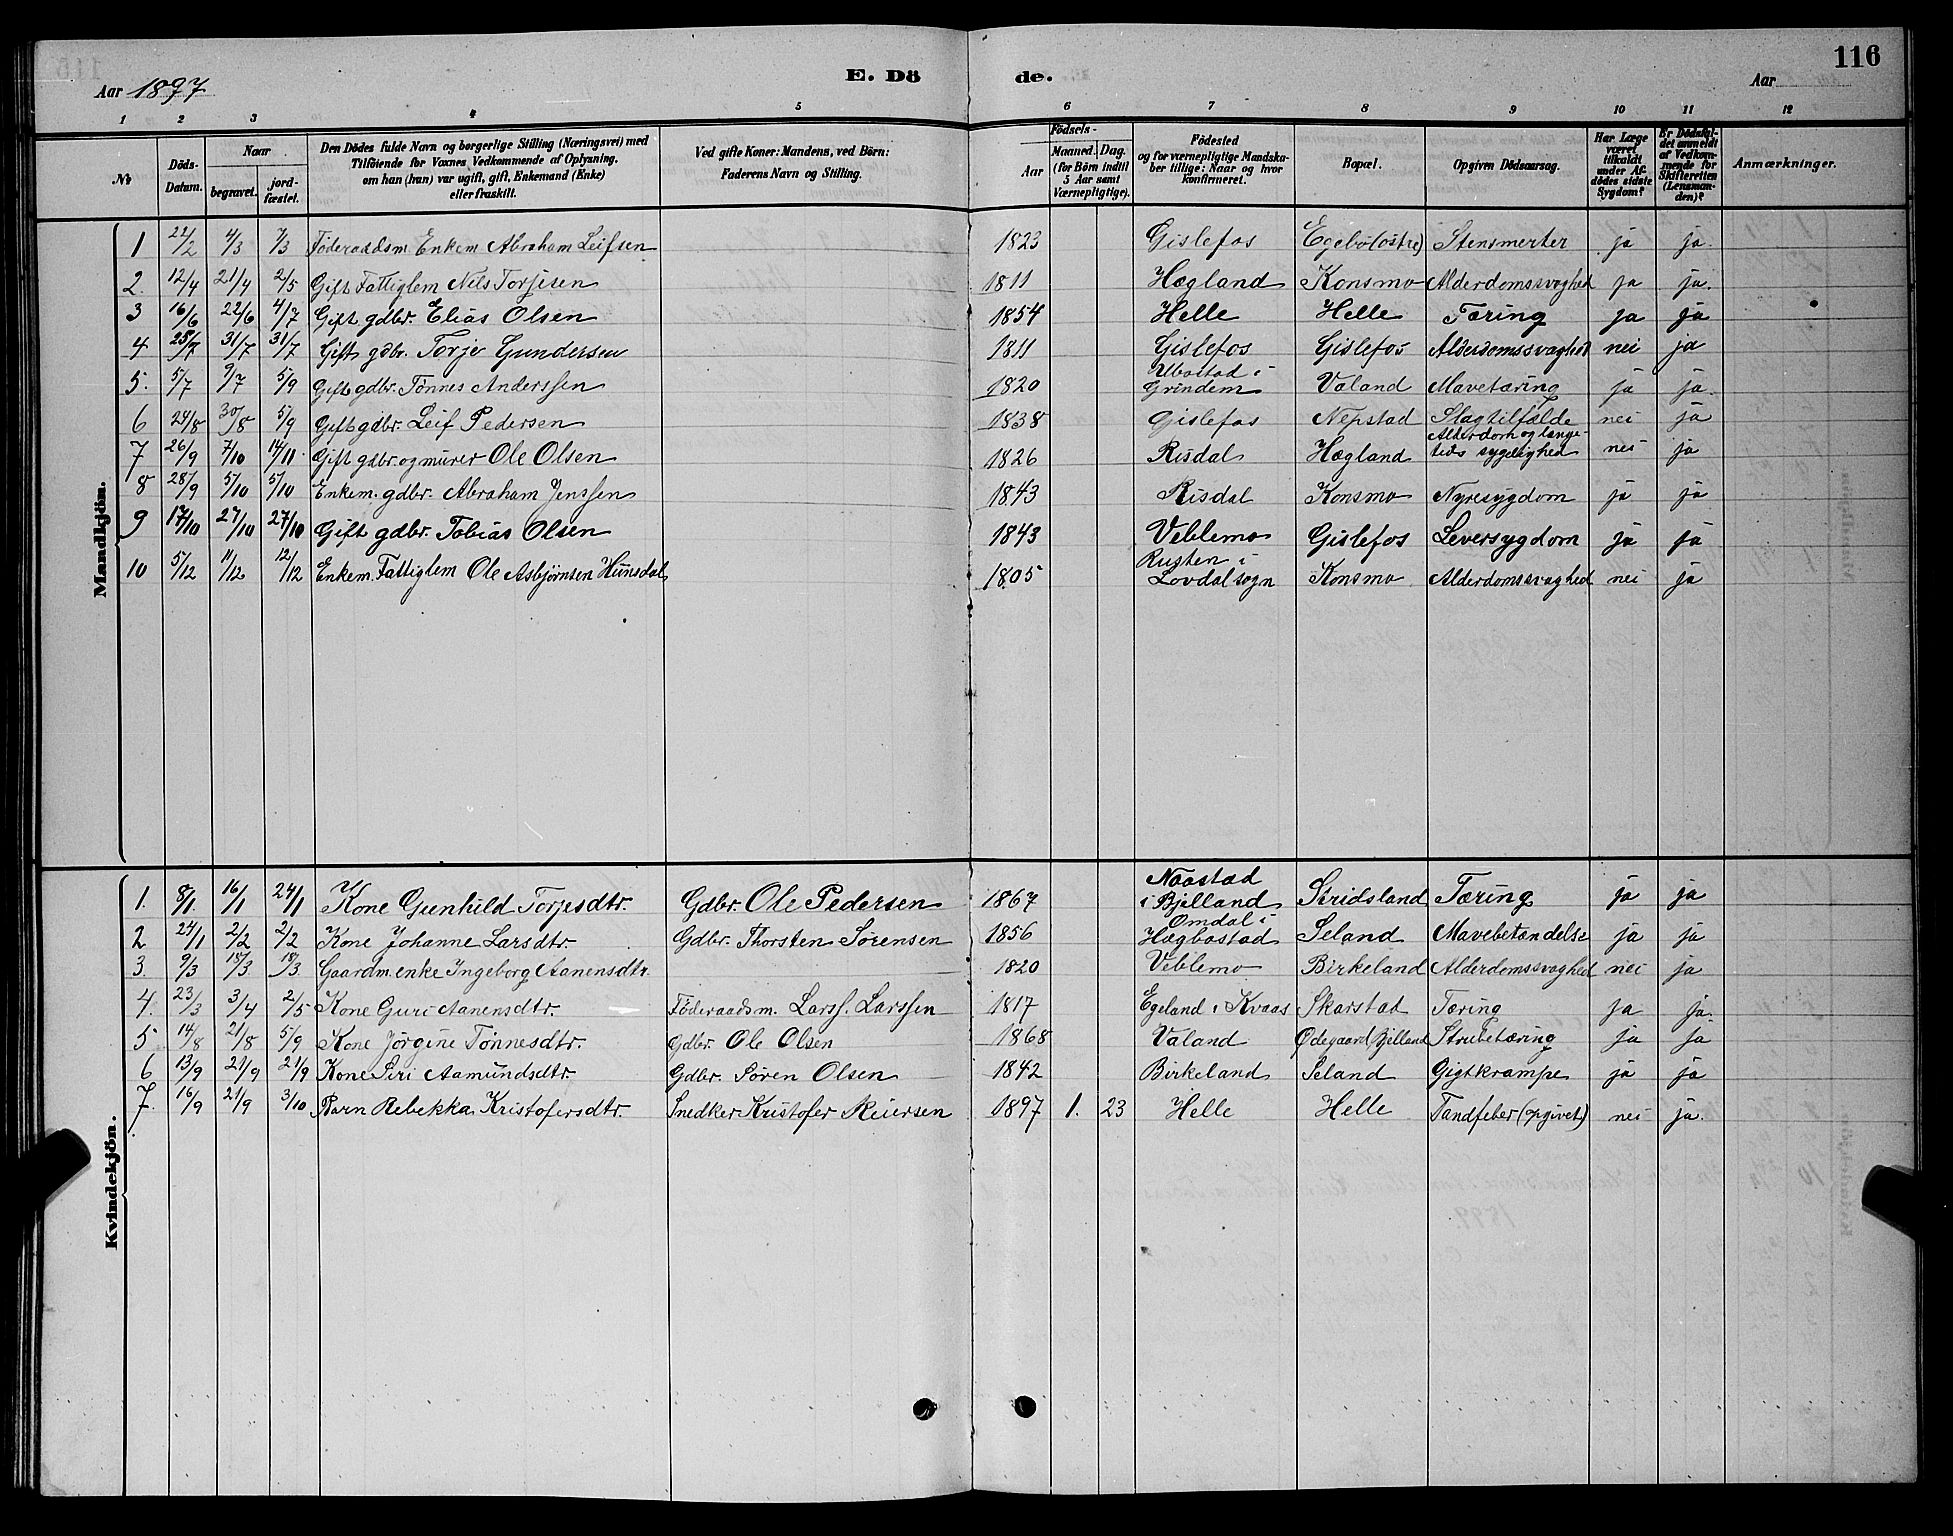 116
Aar 1897
E. Dö
de.
Aar
1 2 3 4 5 6 7 8 9 10 11 12
№
Döds-
Datum.
Naar
begravet.
jord-
fæstet.
Den Dödes fulde Navn og borgerlige Stilling (Næringsvei) med
Tilföiende for Voxnes Vedkommende af Oplysning,
om han (hun) var ugift, gift, Enkemand (Enke)
eller fraskilt.
Ved gifte Koner: Mandens, ved Börn:
Faderens Navn og Stilling.
Födsels-
Aar
Maaned. Dag.
(for Börn indtil
5 Aar samt
Værnepligtige).
Födested
og for værnepligtige Mandska-
ber tillige: Naar og hvor
konfirmeret.
Bopæl.
Opgiven Dödsaarsag.
Har Læge
været
tilkaldt
under Af-
dödes sidste
Sygdom?
Er Dödsfal-
det anmeldt
af Vedkom-
mende for
Skifteretten
(Lensman-
den)?
Anmærkninger.
Mandkjön.
1 22/2 4/3 7/3 Føderaadsm. Enkem Abraham Leifsen 1823 Gislefos Egebø(østre) Stensmerter ja ja.
2. 12/4 21/4 2/5 Gift Fattiglem Nils Torjesen 1811 Hægland Konsmo Alderdomssvaghed ja ja.
3 16/6 22/6 4/7 Gift gdbr. Elias Olsen 1854 Helle Helle Tæring ja ja
4 25/7 31/7 31/7 Gift gdbr. Torje Gundersen 1811 Gislefos Gislefos Alderdomssvaghed nei ja
5. 5/7 9/7 5/9 Gift gdbr. Tønnes Anderssen 1820 Ubostad i Grindem Valand Mavetæring ja ja.
6 24/8 30/8 5/9 Gift gdbr. Leif Pedersen 1838 Gislefos Nepstad Slagtilfælde nei ja
7 26/9 7/10 14/11 Gift gdbr. og murer Ole Olsen 1826 Risdal Hægland Alderdom og længe-
tids sygelighed nei ja
8 28/9 5/10 5/10 Enkem. gdbr. Abraham Jenssen 1843 Risdal Konsmo Nyresygdom ja ja
9 17/10 27/10 27/10 Gift gdbr. Tobias Olsen 1843 Veblemo Gislefos Leversygdom ja ja
10 5/12 11/12 12/12 Enkem. Fattiglem Ole Asbjørnsen Hunsdal 1805 Rusten i
Lovdal sogn Konsmo Alderdomssvaghed nei ja
Kvindekjön.
1. 8/1. 16/1 24/1 Kone Gunhild Torjesdtr. Gdbr. Ole Pedersen 1867 Naastad
i Bjelland Stridsland Tæring ja ja
2 24/1 2/2 2/2 Kone Johanne Larsdtr. Gdbr. Thorsten Sørensen 1856 Omdal i
Hægbostad Seland Mavebetændelse ja ja
3. 9/3 18/3 18/3 Gaardm. enke Ingeborg Aanensdtr. 1820 Veblemo Birkeland Alderdomssvaghed nei ja
4. 23/3 3/4 2/5 Kone Guri Aanensdtr. Føderaadsm. Larss. Larssen 1817 Egeland i Kvaas Skarstad Tæring ja ja.
5. 14/8 21/8 5/9 Kone Jörgine Tønnesdtr. Gdbr. Ole Olsen 1868 Valand Ødegaard Bjelland Strubetæring ja ja
6 13/9 21/9 21/9 Kone Siri Aamundsdtr. Gdbr. Søren Olsen 1842 Birkeland Seland Gigtkrampe ja ja
7. 16/9 21/9 3/10 Barn Rebekka Kristofersdtr. Snedker Kristofer Reiersen 1897 1. 23 Helle Helle Tandfeber (opgivet) nei ja.